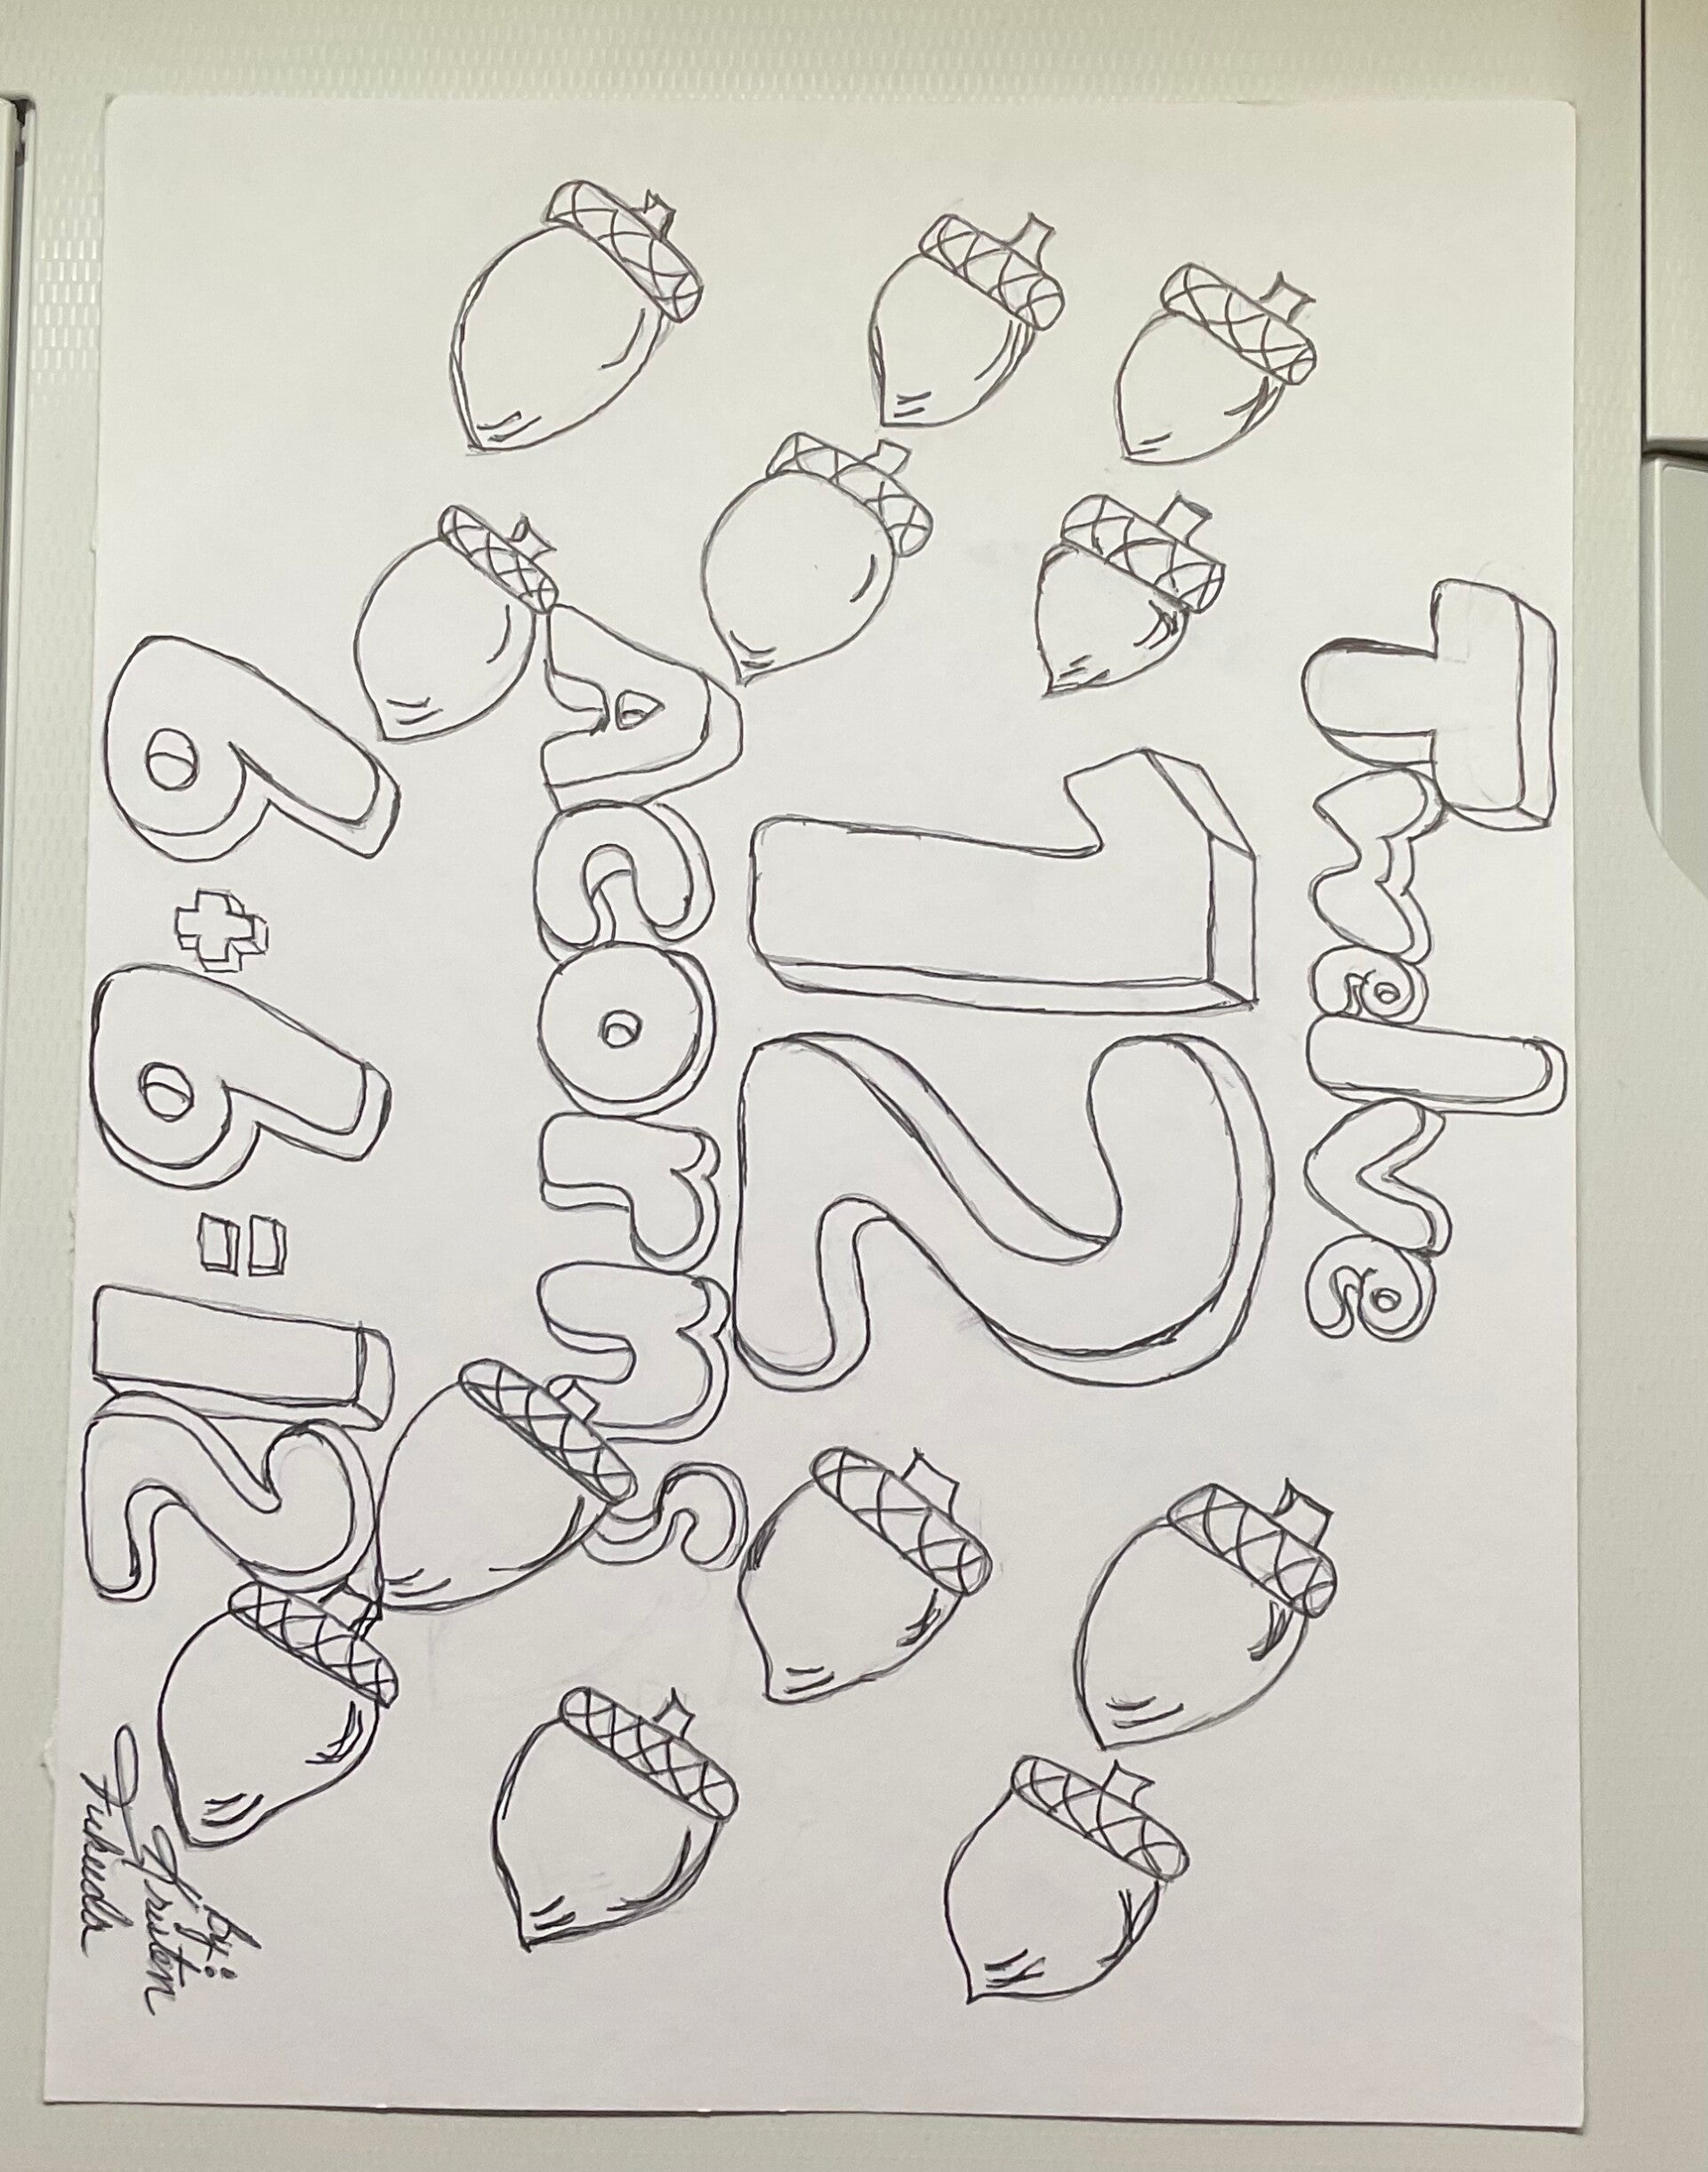 Twelve
12
Acorns
6+6=12
by:
Kristen
Fukuuda